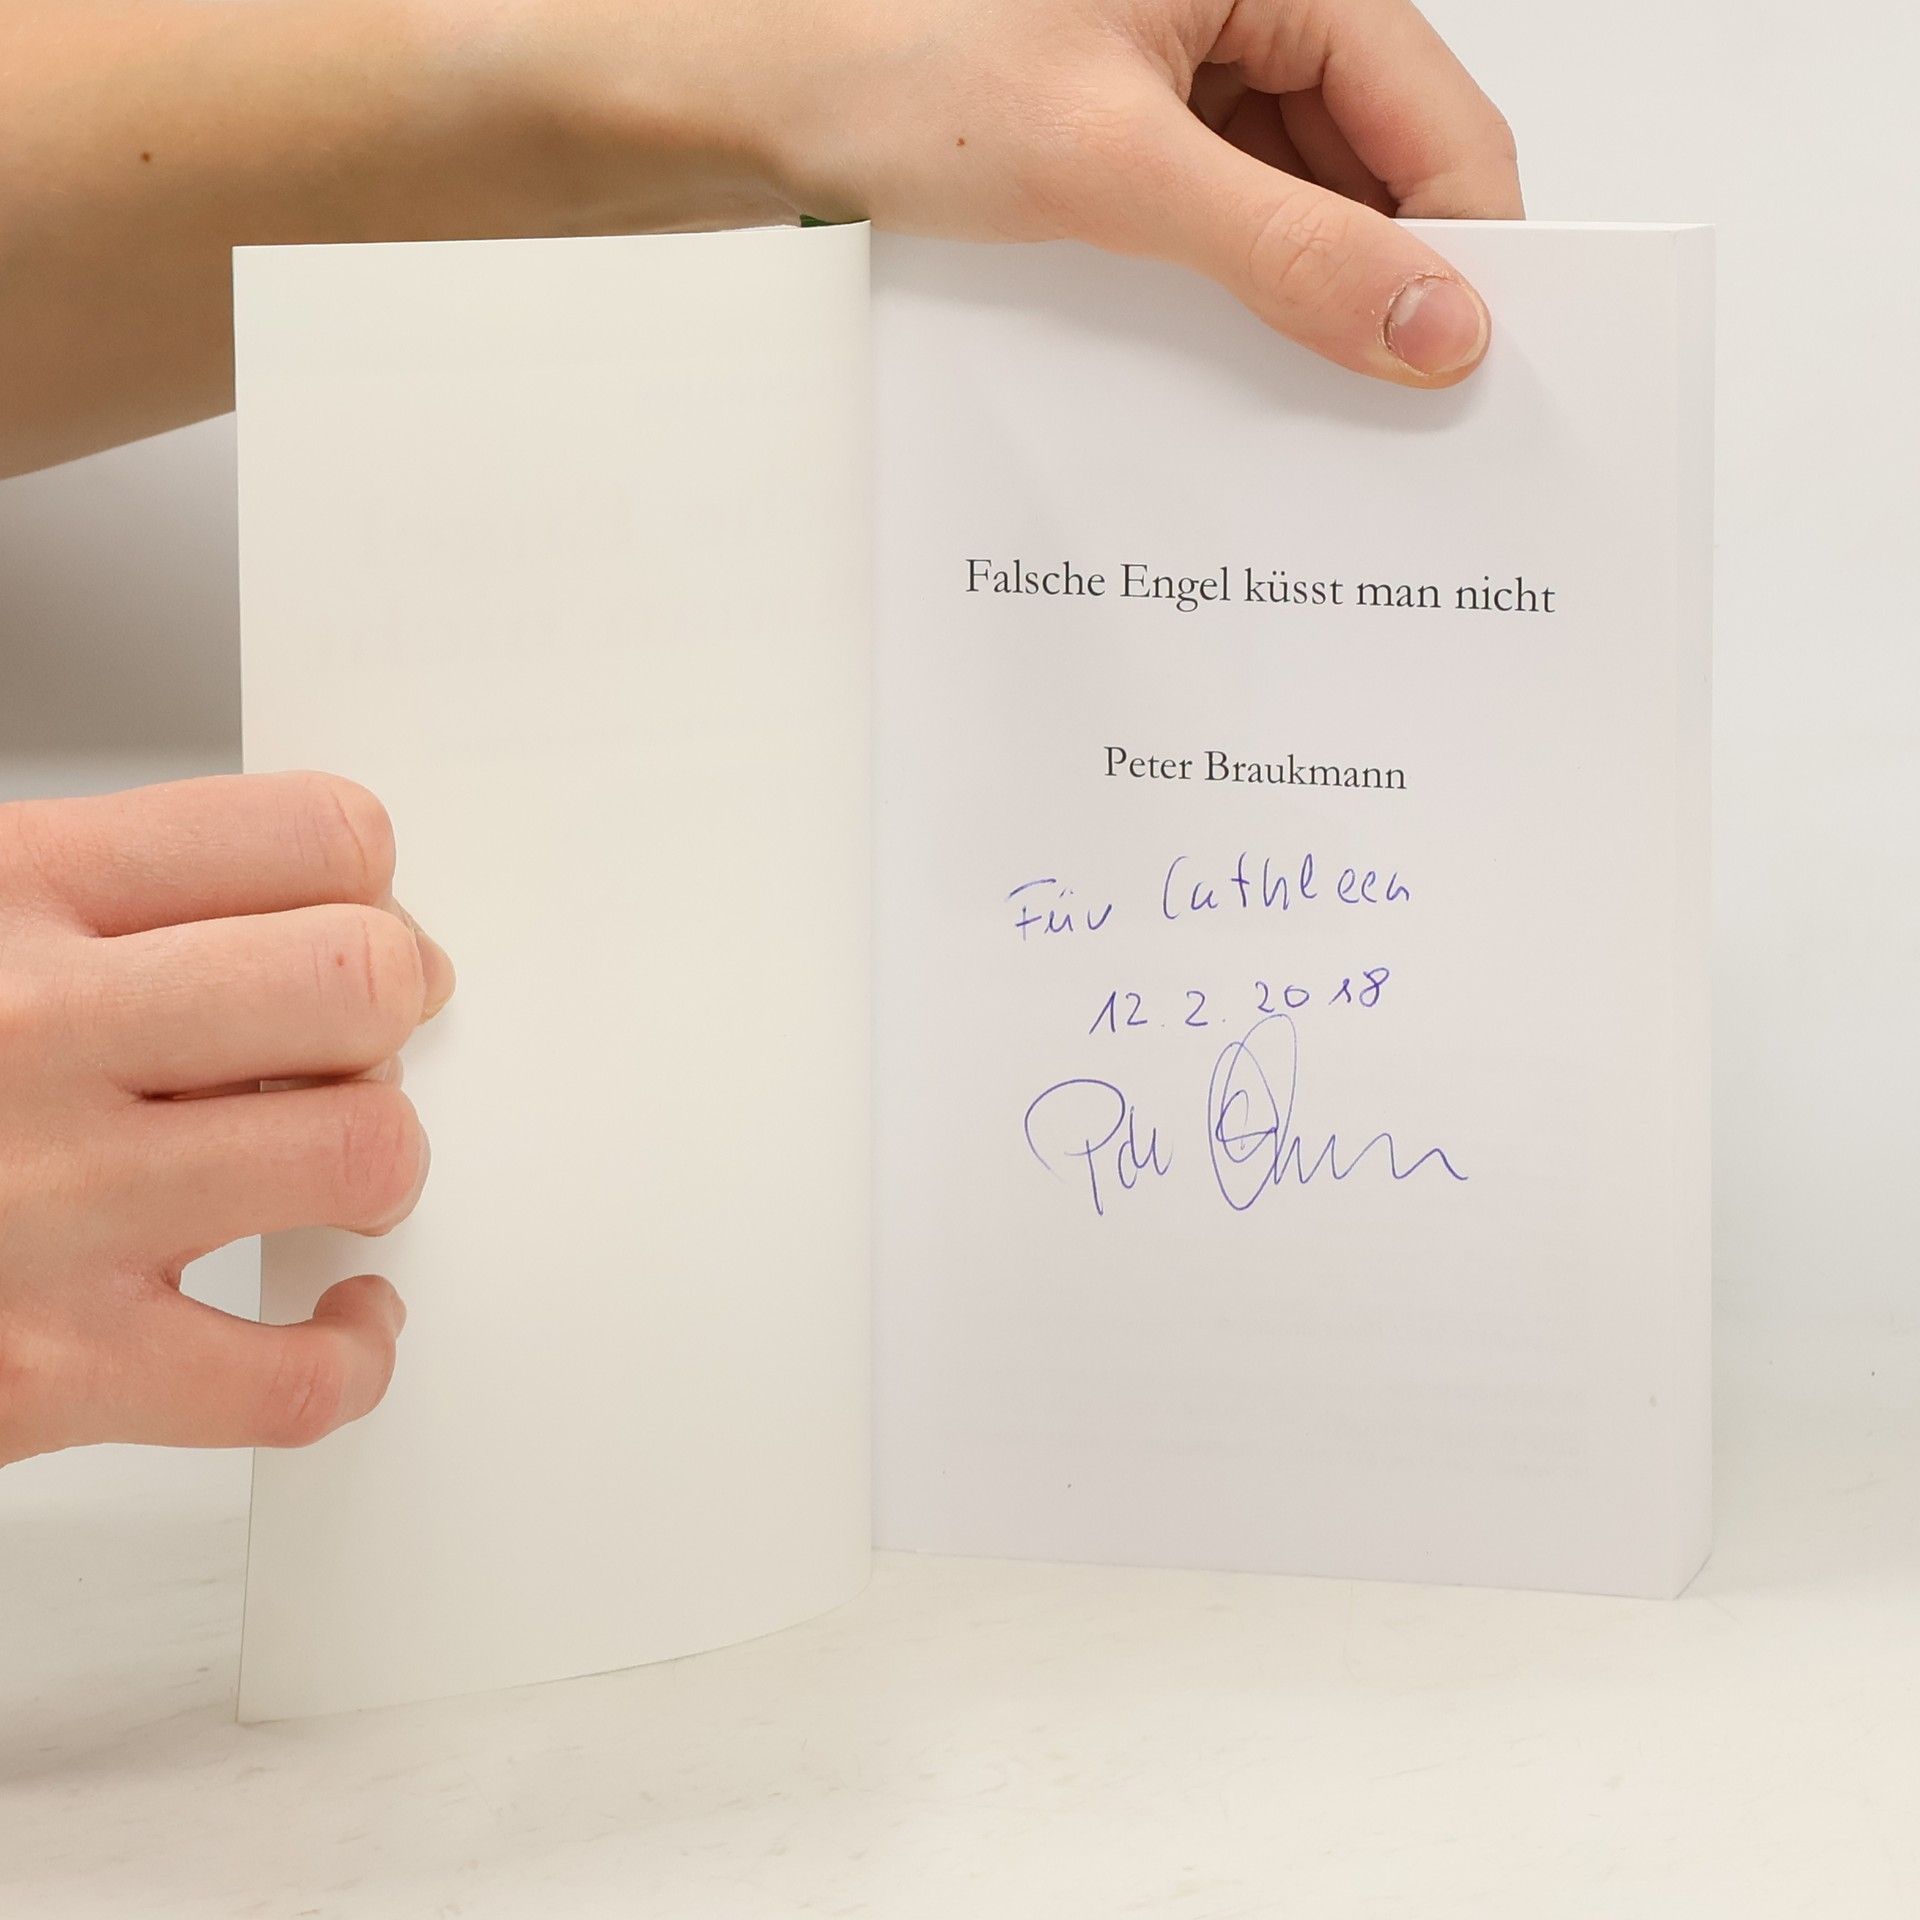 Falsche Engel küsst man nicht
Peter Braukmann
Für Cathleen
12.2.2018